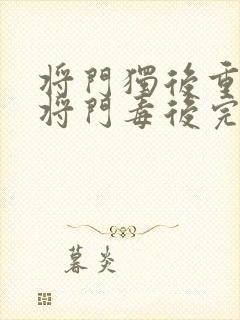 将門獨後重
将門毒後完
暮炎